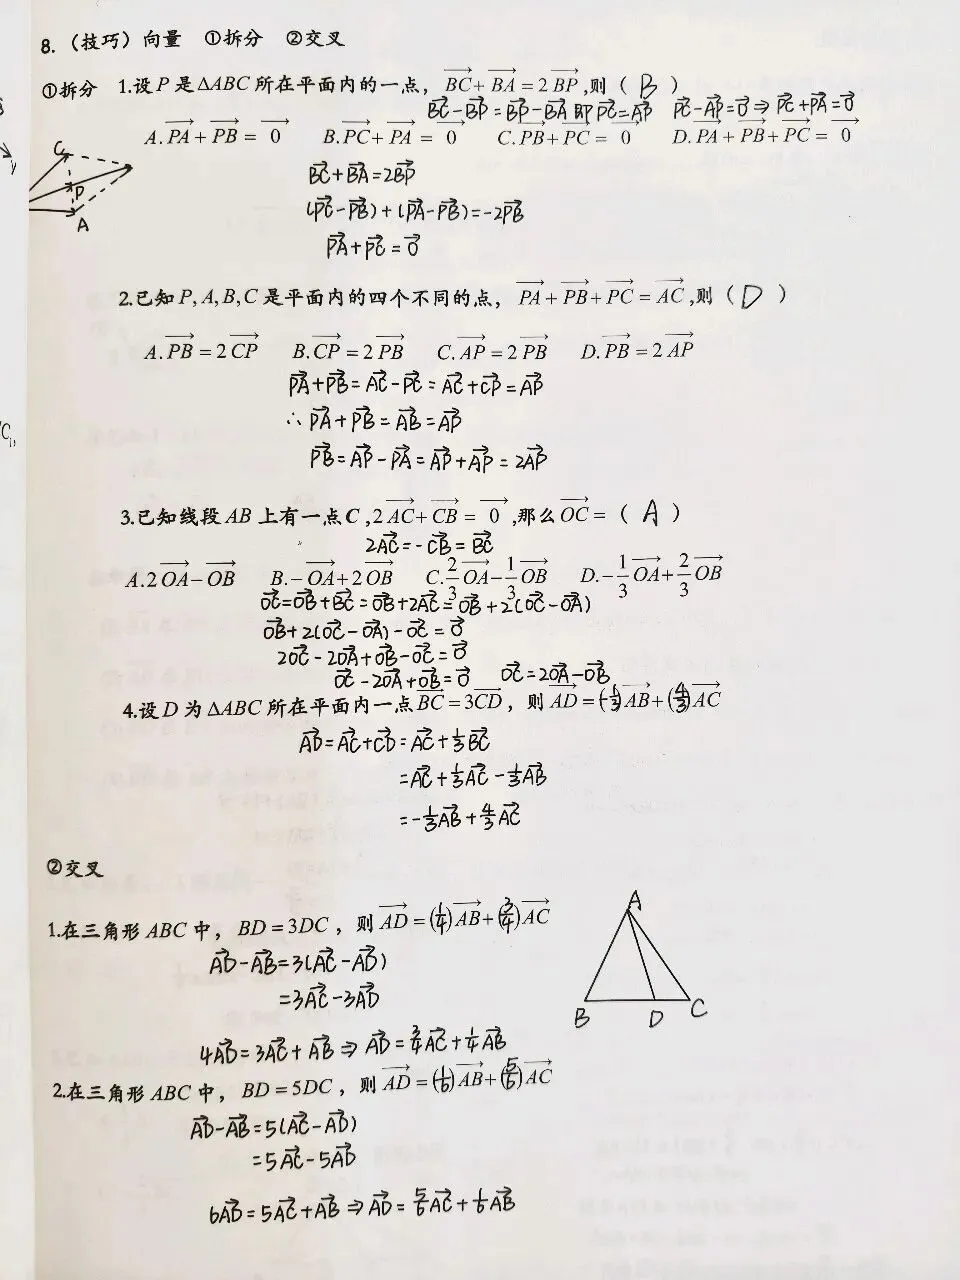 8.（技巧）向量 ①拆分 ②交叉
①拆分 1.设 P 是 ΔABC 所在平面内的一点，$\overrightarrow{BC}+\overrightarrow{BA}=2\overrightarrow{BP}$,则（ B ）
$\overrightarrow{BC}-\overrightarrow{BP}=\overrightarrow{BP}-\overrightarrow{BA}$ 即 $\overrightarrow{PC}=\overrightarrow{AP}$ $\overrightarrow{PC}-\overrightarrow{AP}=\overrightarrow{0}\Rightarrow\overrightarrow{PC}+\overrightarrow{PA}=\overrightarrow{0}$
A.$\overrightarrow{PA}+\overrightarrow{PB}=\overrightarrow{0}$ B.$\overrightarrow{PC}+\overrightarrow{PA}=\overrightarrow{0}$ C.$\overrightarrow{PB}+\overrightarrow{PC}=\overrightarrow{0}$ D.$\overrightarrow{PA}+\overrightarrow{PB}+\overrightarrow{PC}=\overrightarrow{0}$
y
C
P
A
$\overrightarrow{BC}+\overrightarrow{BA}=2\overrightarrow{BP}$
$(\overrightarrow{PC}-\overrightarrow{PB})+(\overrightarrow{PA}-\overrightarrow{PB})=-2\overrightarrow{PB}$
$\overrightarrow{PA}+\overrightarrow{PC}=\overrightarrow{0}$
2.已知 P, A, B, C 是平面内的四个不同的点，$\overrightarrow{PA}+\overrightarrow{PB}+\overrightarrow{PC}=\overrightarrow{AC}$,则（ D ）
A.$\overrightarrow{PB}=2\overrightarrow{CP}$ B.$\overrightarrow{CP}=2\overrightarrow{PB}$ C.$\overrightarrow{AP}=2\overrightarrow{PB}$ D.$\overrightarrow{PB}=2\overrightarrow{AP}$
$\overrightarrow{PA}+\overrightarrow{PB}=\overrightarrow{AC}-\overrightarrow{PC}=\overrightarrow{AC}+\overrightarrow{CP}=\overrightarrow{AP}$
∴ $\overrightarrow{PA}+\overrightarrow{PB}=\overrightarrow{AB}=\overrightarrow{AP}$
$\overrightarrow{PB}=\overrightarrow{AP}-\overrightarrow{PA}=\overrightarrow{AP}+\overrightarrow{AP}=2\overrightarrow{AP}$
3.已知线段 AB 上有一点 C ,$2\overrightarrow{AC}+\overrightarrow{CB}=\overrightarrow{0}$,那么 $\overrightarrow{OC}=$（ A ）
$2\overrightarrow{AC}=-\overrightarrow{CB}=\overrightarrow{BC}$
A.$2\overrightarrow{OA}-\overrightarrow{OB}$ B.$-\overrightarrow{OA}+2\overrightarrow{OB}$ C.$\frac{2}{3}\overrightarrow{OA}-\frac{1}{3}\overrightarrow{OB}$ D.$-\frac{1}{3}\overrightarrow{OA}+\frac{2}{3}\overrightarrow{OB}$
$\overrightarrow{OC}=\overrightarrow{OB}+\overrightarrow{BC}=\overrightarrow{OB}+2\overrightarrow{AC}=\overrightarrow{OB}+2(\overrightarrow{OC}-\overrightarrow{OA})$
$\overrightarrow{OB}+2(\overrightarrow{OC}-\overrightarrow{OA})-\overrightarrow{OC}=\overrightarrow{0}$
$2\overrightarrow{OC}-2\overrightarrow{OA}+\overrightarrow{OB}-\overrightarrow{OC}=\overrightarrow{0}$
$\overrightarrow{OC}-2\overrightarrow{OA}+\overrightarrow{OB}=\overrightarrow{0}$ $\overrightarrow{OC}=2\overrightarrow{OA}-\overrightarrow{OB}$
4.设 D 为 ΔABC 所在平面内一点 $\overrightarrow{BC}=3\overrightarrow{CD}$，则 $\overrightarrow{AD}=(-\frac{1}{3})\overrightarrow{AB}+(\frac{4}{3})\overrightarrow{AC}$
$\overrightarrow{AD}=\overrightarrow{AC}+\overrightarrow{CD}=\overrightarrow{AC}+\frac{1}{3}\overrightarrow{BC}$
$=\overrightarrow{AC}+\frac{1}{3}\overrightarrow{AC}-\frac{1}{3}\overrightarrow{AB}$
$=-\frac{1}{3}\overrightarrow{AB}+\frac{4}{3}\overrightarrow{AC}$
②交叉
1.在三角形 ABC 中，BD=3DC，则 $\overrightarrow{AD}=(\frac{1}{4})\overrightarrow{AB}+(\frac{3}{4})\overrightarrow{AC}$
$\overrightarrow{AD}-\overrightarrow{AB}=3(\overrightarrow{AC}-\overrightarrow{AD})$
$=3\overrightarrow{AC}-3\overrightarrow{AD}$
$4\overrightarrow{AD}=3\overrightarrow{AC}+\overrightarrow{AB}\Rightarrow\overrightarrow{AD}=\frac{3}{4}\overrightarrow{AC}+\frac{1}{4}\overrightarrow{AB}$
A
B D C
2.在三角形 ABC 中，BD=5DC，则 $\overrightarrow{AD}=(\frac{1}{6})\overrightarrow{AB}+(\frac{5}{6})\overrightarrow{AC}$
$\overrightarrow{AD}-\overrightarrow{AB}=5(\overrightarrow{AC}-\overrightarrow{AD})$
$=5\overrightarrow{AC}-5\overrightarrow{AD}$
$6\overrightarrow{AD}=5\overrightarrow{AC}+\overrightarrow{AB}\Rightarrow\overrightarrow{AD}=\frac{5}{6}\overrightarrow{AC}+\frac{1}{6}\overrightarrow{AB}$